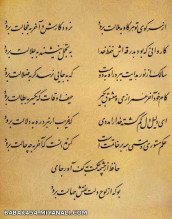 از سر کوی تو هر کو بملالت برود نرود کارش و آخر بخجالت برود
کاروانی که بود بدرقه‌اش حفظ خدا به تجمل بنشیند بجلالت برود
سالک از نور هدایت ببرد راه بدوست که بجایی نرسد گر بضلالت برود
کام خود آخر عمر از می و معشوق بگیر حیف اوقات که یکسر ببطالت برود
ای دلیل دل گمگشته خدا را مددی که غریب ار نبرد ره بدلالت برود
حکم مستوری و مستی همه بر خاتمت است کس ندانست که آخر بچه حالت برود
حافظ از چشمه حکمت بکف آور جامی
بو که از لوح دلت نقش جهالت برود
BABAKASA.MIYANALI.COM